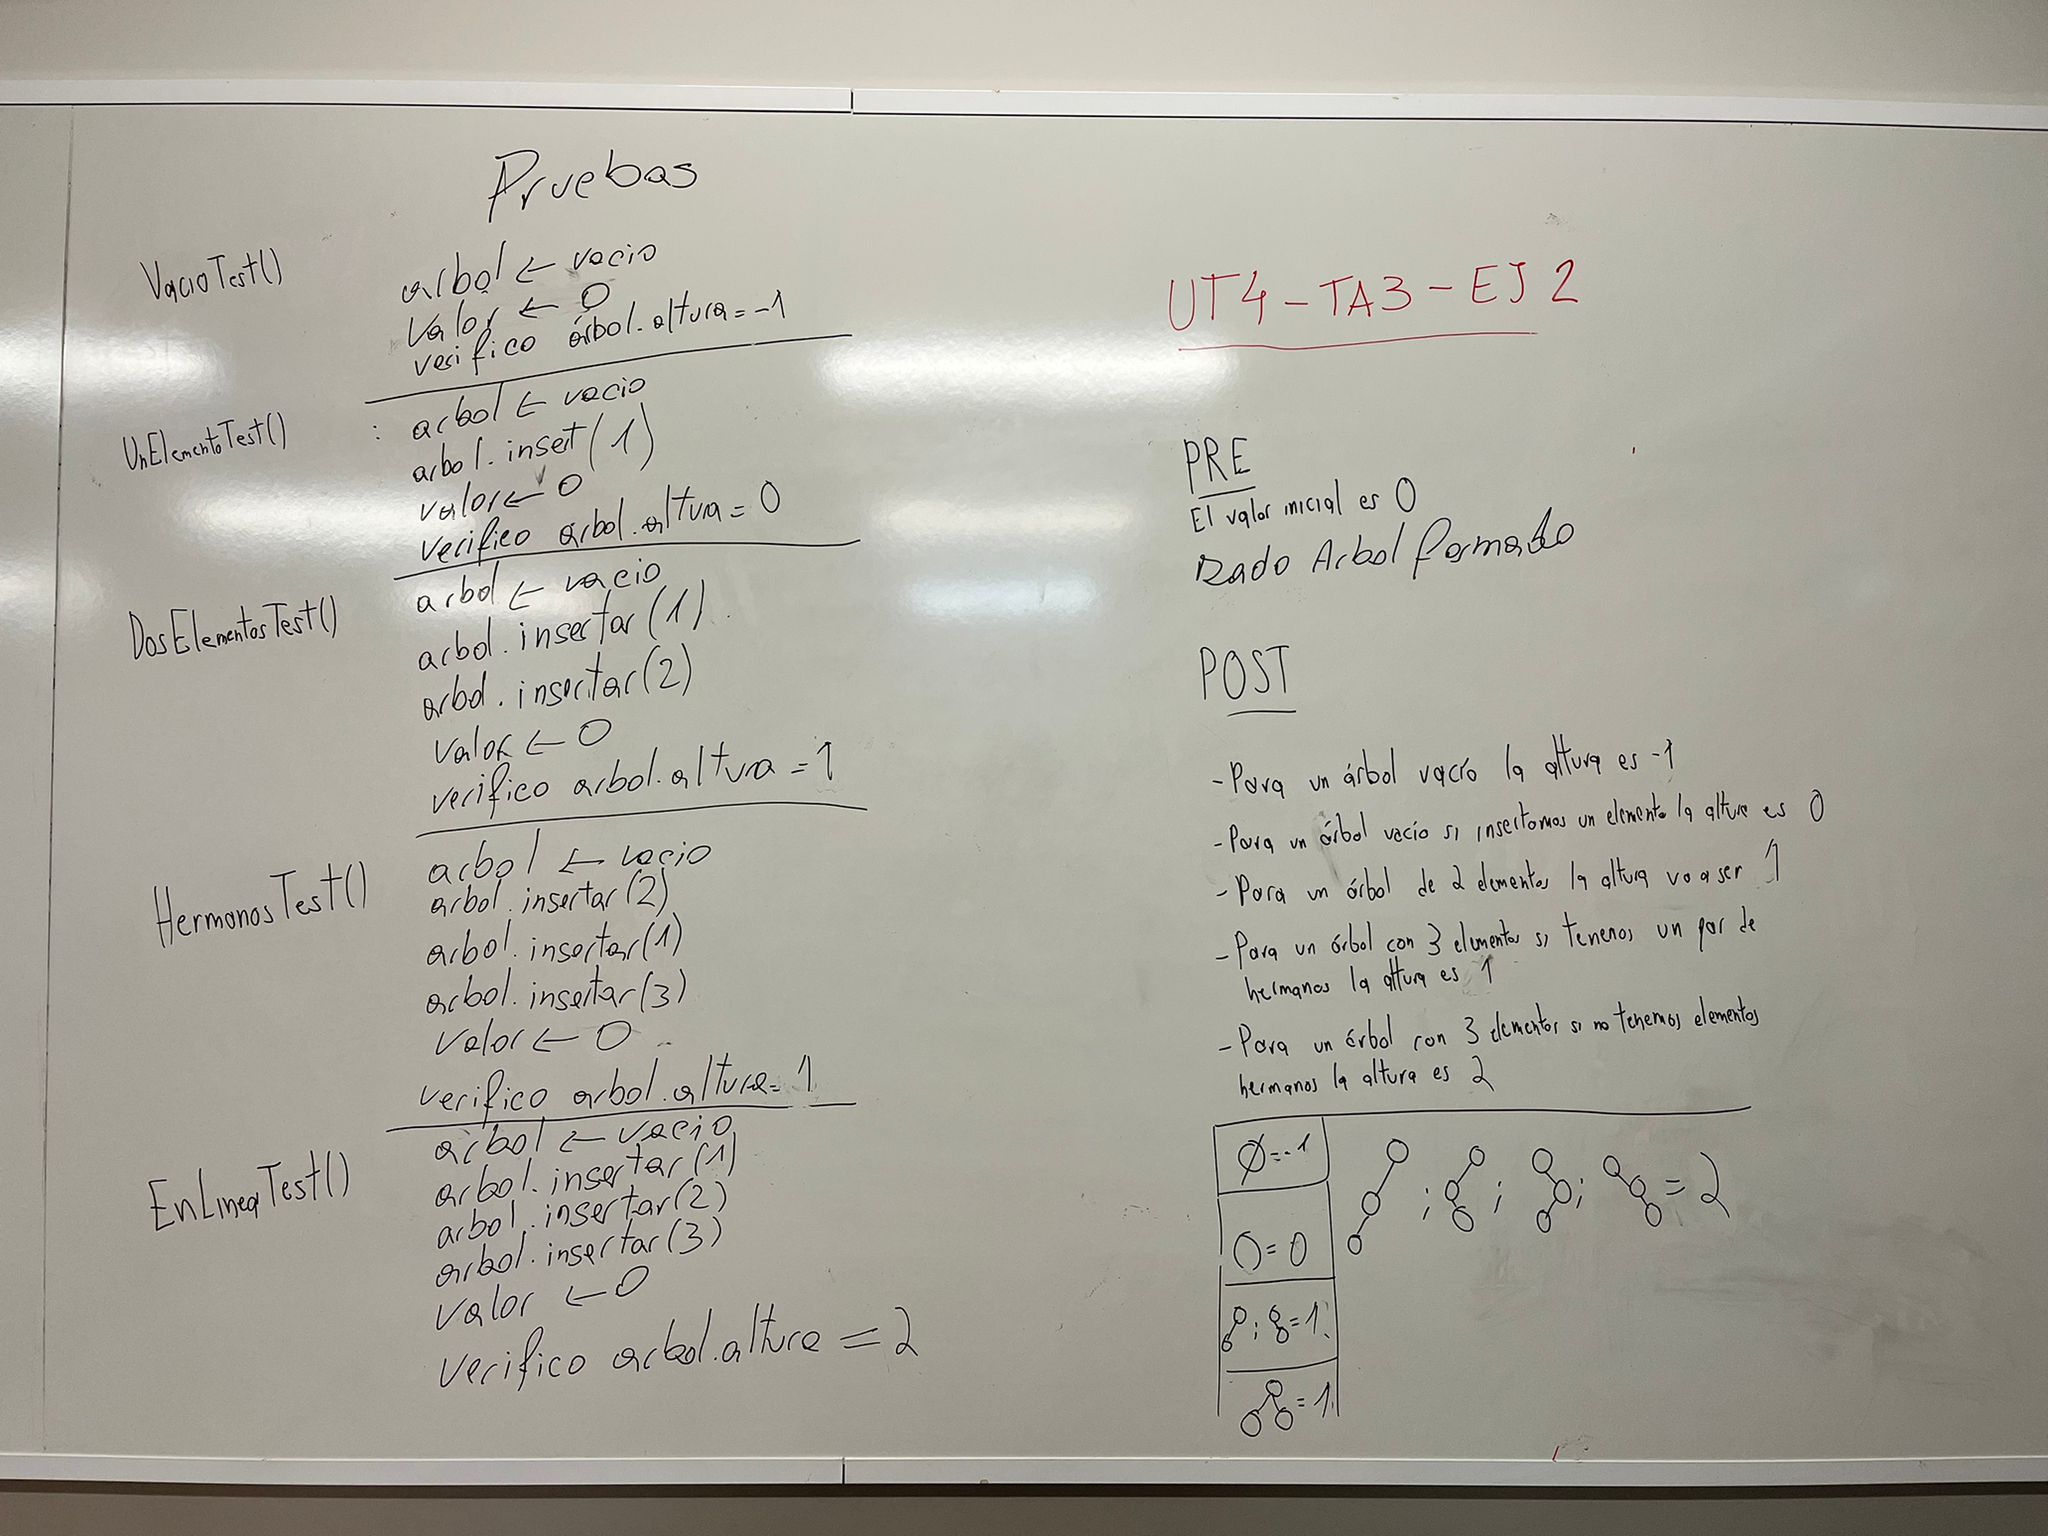 Pruebas
VacioTest()
arbol ← vacio
Valor ← 0
verifico árbol.altura = -1
UnElementoTest() :
arbol ← vacio
arbol.insert(1)
valor ← 0
verifico arbol.altura = 0
DosElementosTest()
arbol ← vacio
arbol.insertar(1)
arbol.insertar(2)
valor ← 0
verifico arbol.altura = 1
HermanosTest()
arbol ← vacio
arbol.insertar(2)
arbol.insertar(1)
arbol.insertar(3)
valor ← 0
verifico arbol.altura = 1
EnLineaTest()
arbol ← vacio
arbol.insertar(1)
arbol.insertar(2)
arbol.insertar(3)
valor ← 0
verifico arbol.altura = 2
UT4 - TA3 - EJ 2
PRE
El valor inicial es 0
Dado Arbol formado
POST
- Para un árbol vacío la altura es -1
- Para un árbol vacío si insertamos un elemento la altura es 0
- Para un árbol de 2 elementos la altura va a ser 1
- Para un árbol con 3 elementos si tenemos un par de
hermanos la altura es 1
- Para un árbol con 3 elementos si no tenemos elementos
hermanos la altura es 2
Ø = -1
; ; ; = 2
= 0
; = 1
= 1